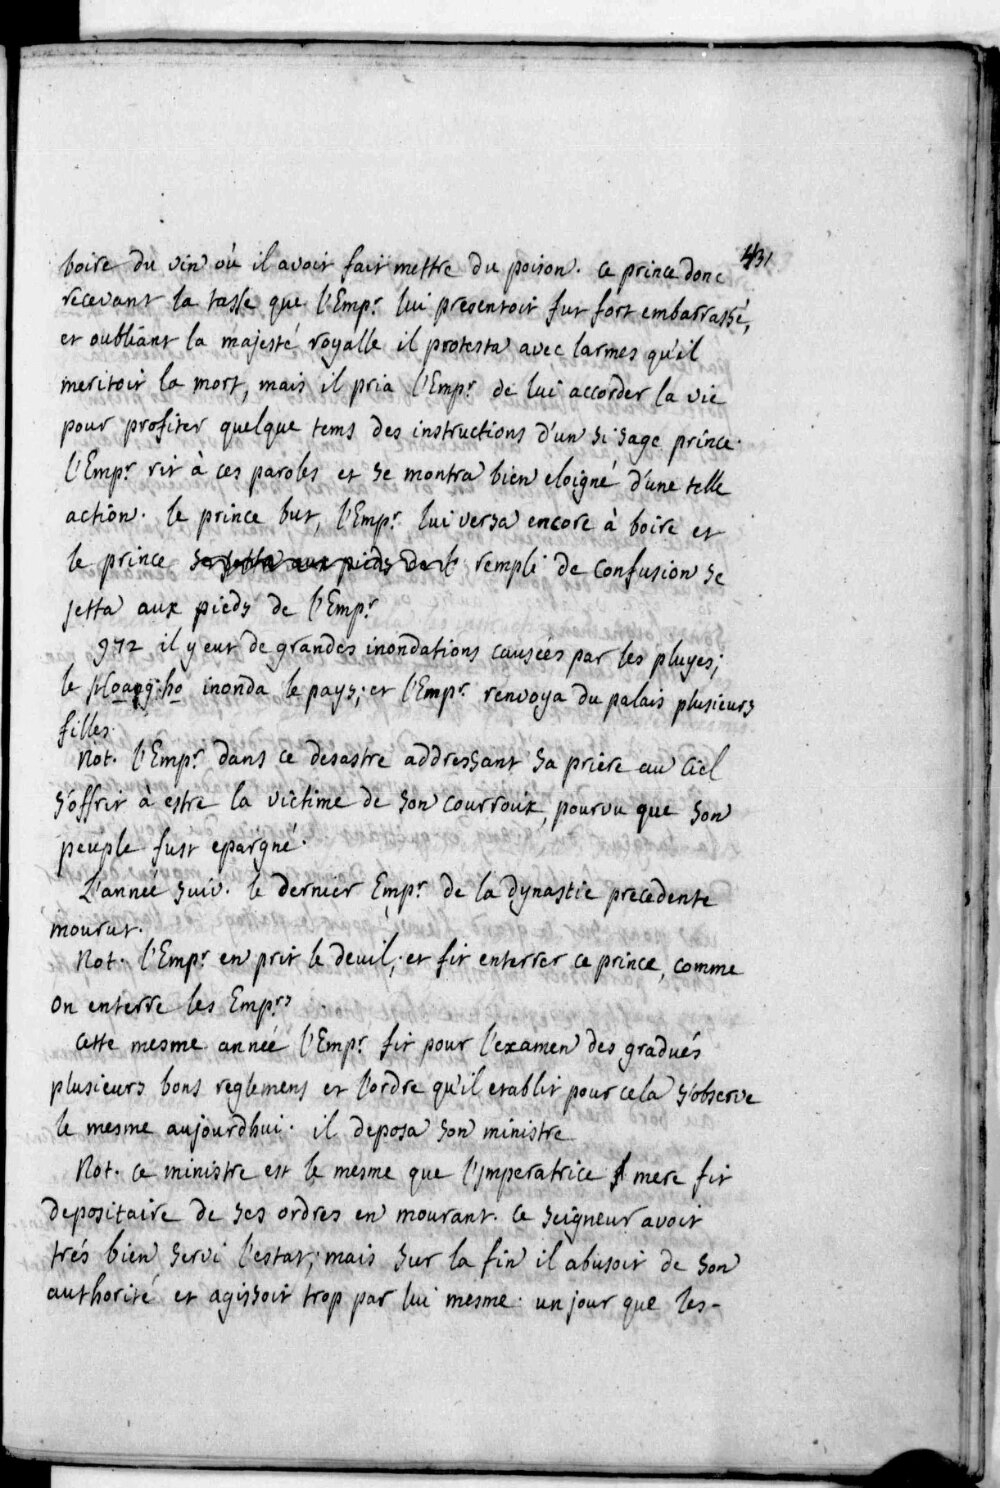 431
boire du vin où il avoit fait mettre du poison. ce prince donc
recevant la tasse que l'Emp.r lui presentoit fut fort embarrassé,
et oubliant la majesté royalle il protesta avec larmes qu'il
meritoit la mort, mais il pria l'Emp.r de lui accorder la vie
pour profiter quelque tems des instructions d'un si sage prince.
l'Emp.r rit à ces paroles et se montra bien eloigné d'une telle
action. le prince but, l'Emp.r lui versa encore à boire et
le prince se jetta aux pieds de l' rempli de confusion se
jetta aux pieds de l'Emp.r
972 il y eut de grandes inondations causées par les pluyes;
le Hoang-ho inonda le pays; et l'Emp.r renvoya du palais plusieurs
filles.
Not. l'Emp.r dans ce desastre addressant sa priere au Ciel
s'offrit à estre la victime de son courroux, pourvu que son
peuple fust epargné.
L'année suiv. le dernier Emp.r de la dynastie precedente
mourut.
Not. l'Emp.r en prit le deuil, et fit enterrer ce prince, comme
on enterre les Emp.rs
cette mesme année l'Emp.r fit pour l'examen des gradués
plusieurs bons reglemens et l'ordre qu'il etablit pour cela s'observe
le mesme aujourdhui. il deposa son ministre
Not. ce ministre est le mesme que l'Imperatrice mere fit
depositaire de ses ordres en mourant. ce seigneur avoit
trés bien servi l'estat; mais sur la fin il abusoit de son
authorité et agissoit trop par lui mesme. un jour que les-